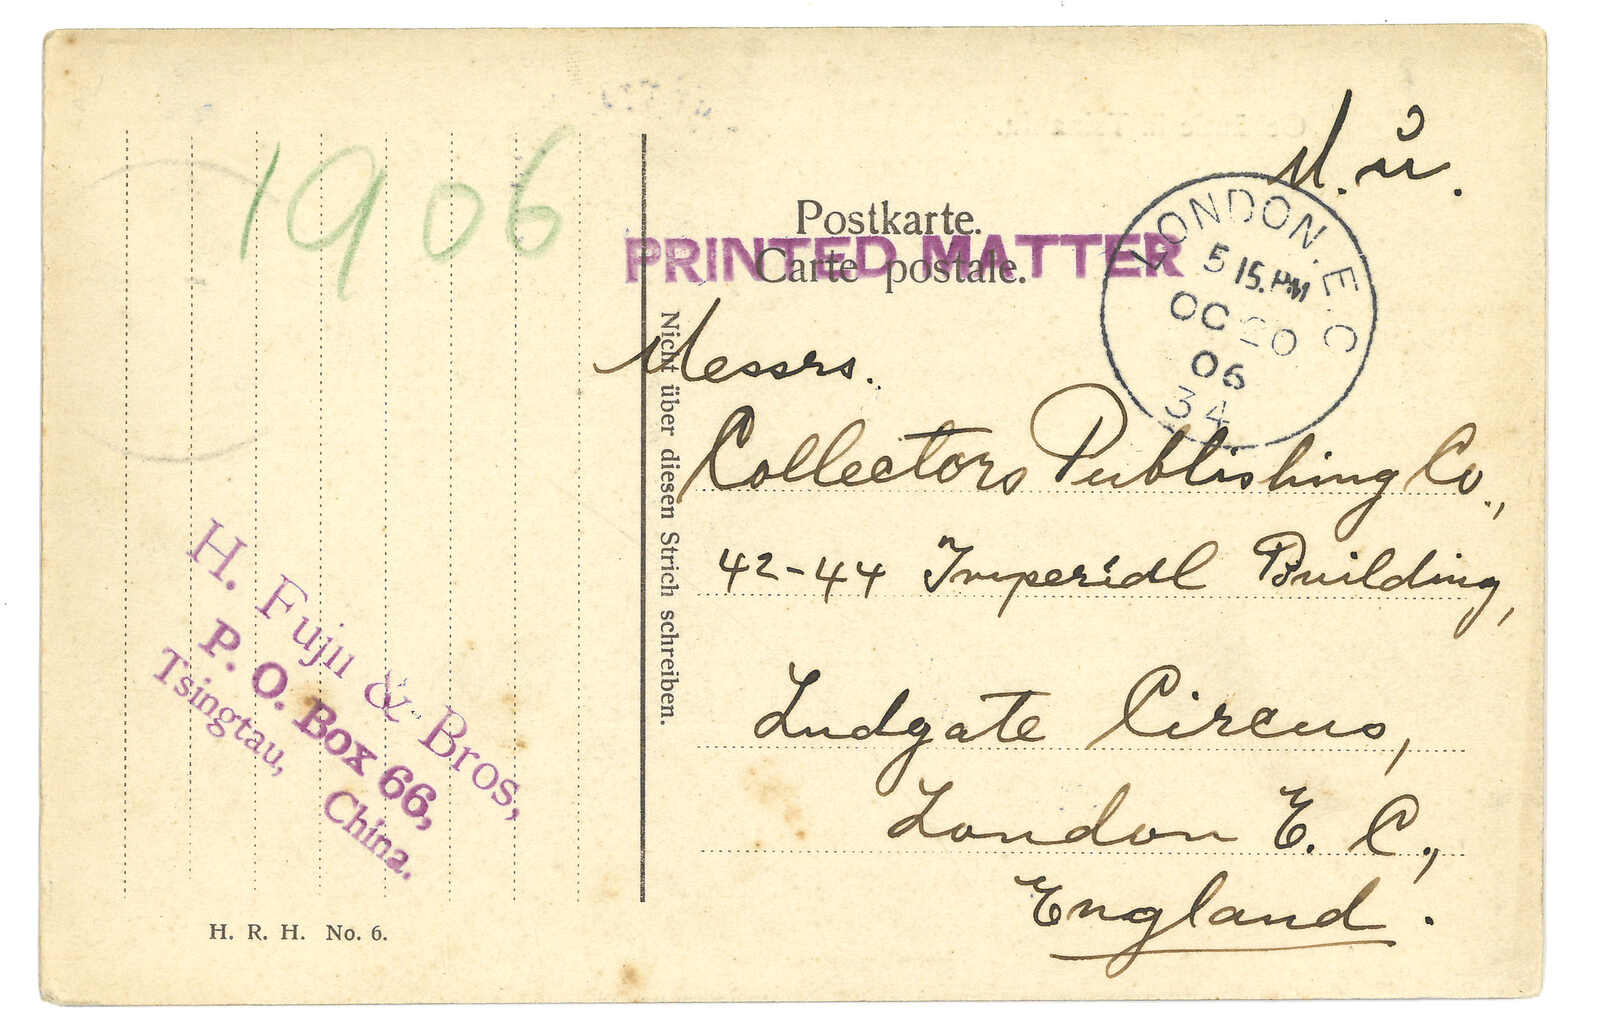 1906
M. ü.
Postkarte.
PRINTED MATTER
Carte postale.
LONDON. E.C
5 15. PM
OC 20
06
34
Nicht über diesen Strich schreiben.
Messrs.
Collectors Publishing Co.,
42-44 Imperial Building,
Ludgate Circus,
London E. C.,
England.
H. Fujii & Bros,
P. O. Box 66,
Tsingtau, China.
H. R. H. No. 6.